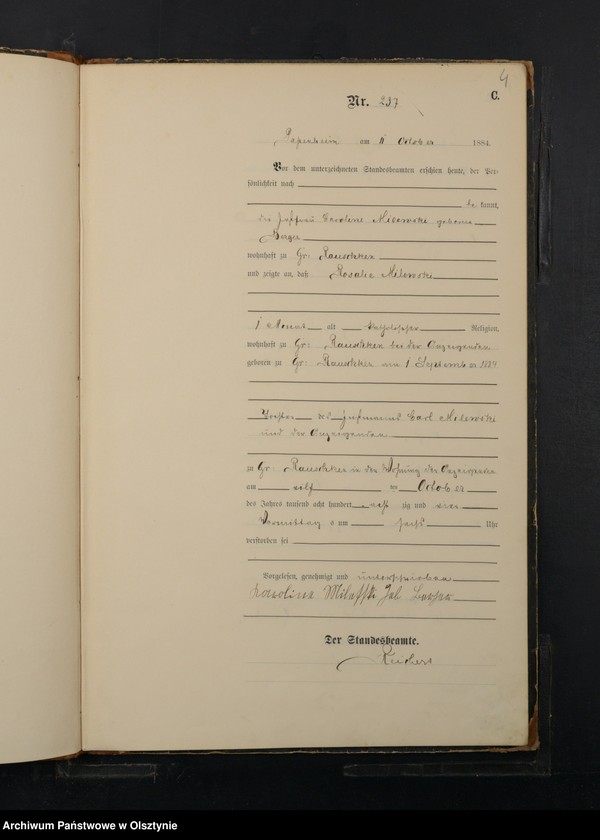 4
C.
Nr. 237
am 11 October 1884.
Vor dem unterzeichneten Standesbeamten erschien heute, der Per-
sönlichkeit nach
be kannt,
die Caroline Milewski geborene
Berger
wohnhaft zu Gr: Rauschken
und zeigte an, daß Rosalie Milewski
1 Monat alt Religion,
wohnhaft zu Gr: Rauschken bei der Anzeigenden
geboren zu Gr: Rauschken am 1 September 1884
Tochter des Carl Milewski
und der Anzeigenden
zu Gr: Rauschken in der Wohnung der Anzeigenden
am elf ten October
des Jahres tausend acht hundert acht zig und vier
Vormittag s um Uhr
verstorben sei
Vorgelesen, genehmigt und unterschrieben
Karoline
Der Standesbeamte.
Archiwum Państwowe w Olsztynie